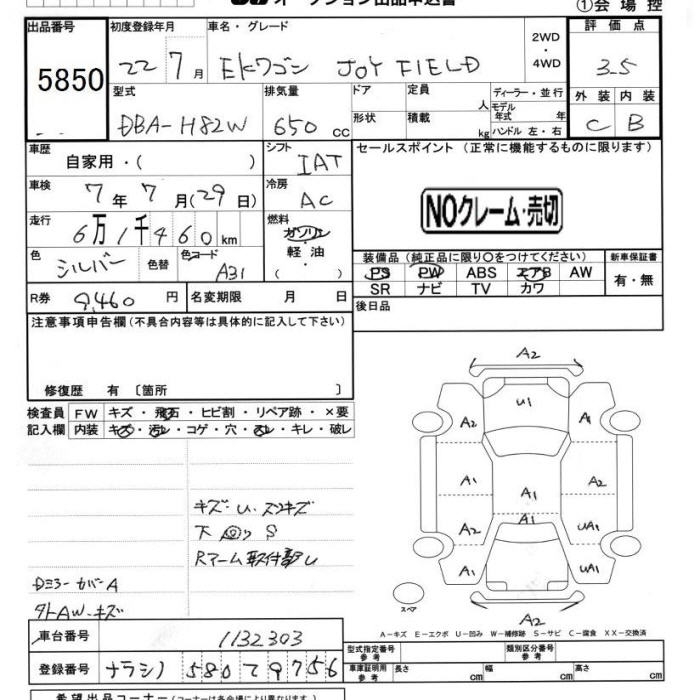 オークション出品申込書 ①会場控
出品番号 初度登録年月 車名・グレード 2WD・4WD 評価点
5850 22 7月 EKワゴン JOY FIELD 3.5
型式 排気量 ドア 定員 人 ディーラー・並行 外装 内装
DBA-H82W 650cc 形状 積載 kg モデル年式 年 ハンドル 左・右 C B
車歴 自家用・( ) シフト IAT セールスポイント (正常に機能するものに限ります)
車検 7年7月(29日) 冷房 AC
NOクレーム・売切
走行 6万1千460km 燃料 ガソリン・軽油 ( ・ )
色 シルバー 色替 色コード A31
装備品 (純正品に限り○をつけてください) 新車保証書
PS PW ABS エアB AW 有・無
SR ナビ TV カワ
R券 9,460円 名変期限 月 日 後日品
注意事項申告欄 (不具合内容等は具体的に記入して下さい)
修復歴 有 〔箇所 〕
検査員 FW キズ・飛石・ヒビ割・リペア跡・×要
記入欄 内装 キズ・汚レ・コゲ・穴・スレ・キレ・破レ
A2
U1
A2 A1
A1 A2
A1
A2 UA1
A1 UA1
A2
スペア
キズ・U.
下 S
Rアーム取付部U
DミラーカバーA
外AW・キズ
A-キズ E-エクボ U-凹み W-補修跡 S-サビ C-腐食 XX-交換済
車台番号 1132303
登録番号 ナラシノ 580 て 9756
型式指定番号 参考 類別区分番号 参考
車庫証明用 参考 長さ cm 幅 cm 高さ cm
希望出品コーナー (コーナーは各会場により異なります。)